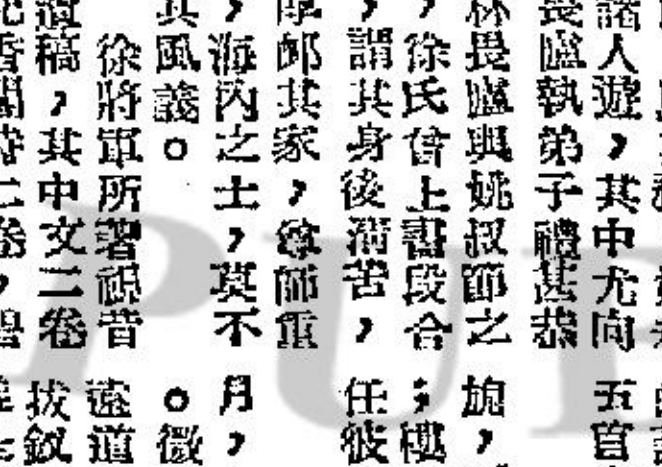 諸人遊,其中尤向
畏廬執弟子禮甚恭
林畏廬與姚叔節之
,徐氏曾上書段合
,謂其身後苦,
厚卹其家,尊師重
,海內之士,莫不
其風義。
徐將軍所著視昔
遺稿,其中文二卷
五官
旎,
;樓
任彼
月,
。微
遠道
拔釵
PUB